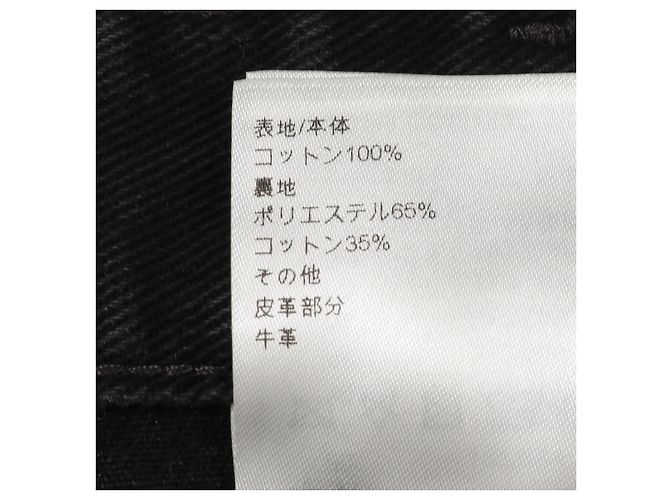 表地/本体
コットン100%
裏地
ポリエステル65%
コットン35%
その他
皮革部分
牛革